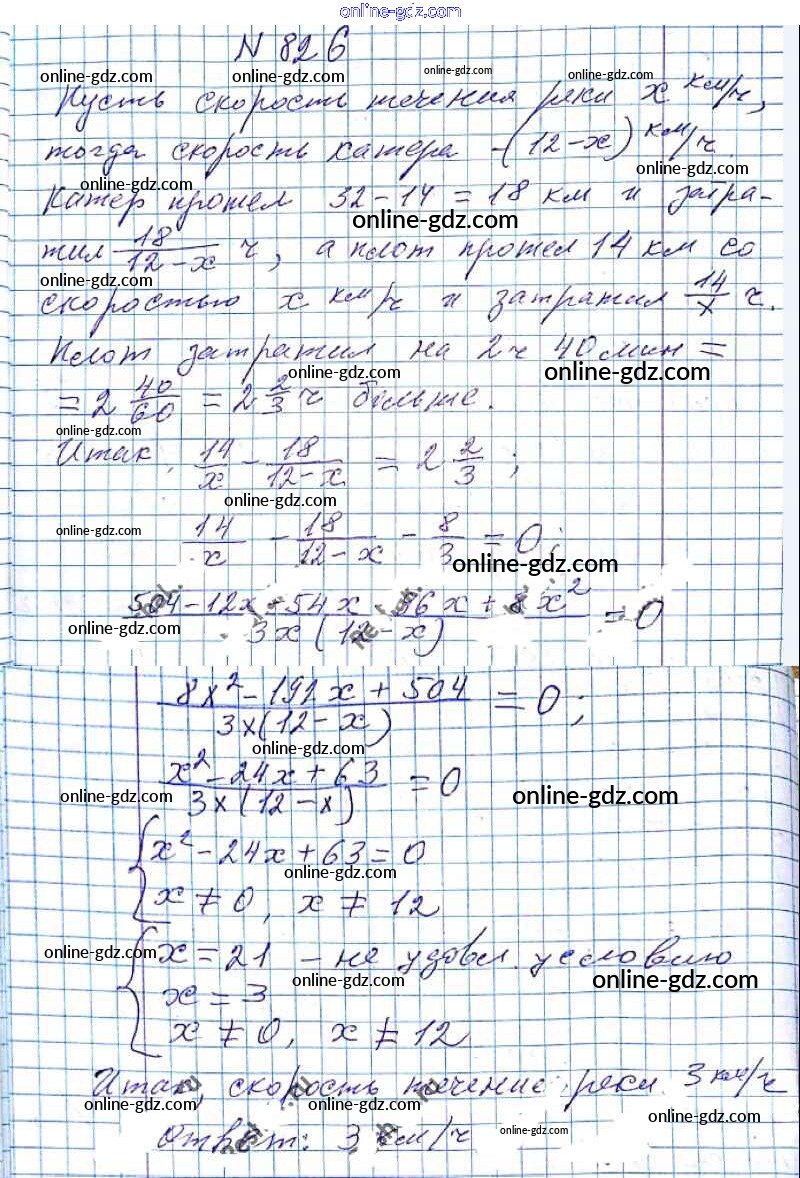 online-gdz.com
N 826
online-gdz.com online-gdz.com online-gdz.com
Пусть скорость течения реки x км/ч,
тогда скорость катера - (12-x) км/ч.
online-gdz.com online-gdz.com
Катер прошел 32-14 = 18 км и затра-
online-gdz.com
тил 18/(12-x) ч, а плот прошел 14 км со
скоростью x км/ч и затратил 14/x ч.
online-gdz.com online-gdz.com
Плот затратил на 2ч 40 мин =
online-gdz.com online-gdz.com
= 2 40/60 = 2 2/3 ч більше.
online-gdz.com
Итак, 14/x - 18/(12-x) = 2 2/3 ;
online-gdz.com
online-gdz.com
14/x - 18/(12-x) - 8/3 = 0;
online-gdz.com
(504-12x-54x-96x+8x²)/(3x(12-x)) = 0
online-gdz.com
(8x²-192x+504)/(3x(12-x)) = 0;
online-gdz.com
(x²-24x+63)/(3x(12-x)) = 0
online-gdz.com online-gdz.com
{ x²-24x+63=0
online-gdz.com
x ≠ 0, x ≠ 12
{ x = 21 - не удовл. условию
online-gdz.com online-gdz.com online-gdz.com
x = 3
x ≠ 0, x ≠ 12
Итак, скорость течение реки 3 км/ч
online-gdz.com online-gdz.com online-gdz.com
Ответ: 3 км/ч
online-gdz.com online-gdz.com